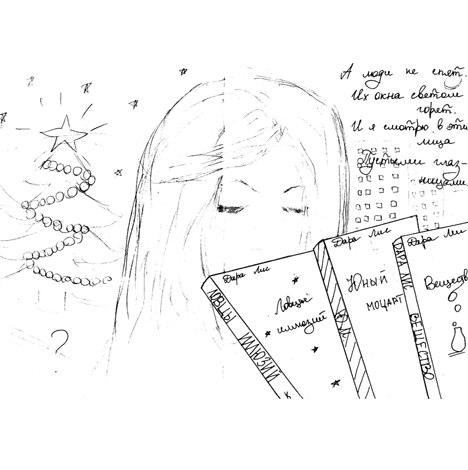 А люди не спят.
Их окна светом
горят.
И я смотрю в эти
лица
Пустыми глаз-
ницами.
?
Дара Лис
Ловцы
иллюзий
ЛОВЦЫ ИЛЛЮЗИИ К
Дара Лис
Юный
МОЦАРТ
Ю.М.
Дара Лис
Веществ
ДАРА ЛИС ВЕЩЕСТВО